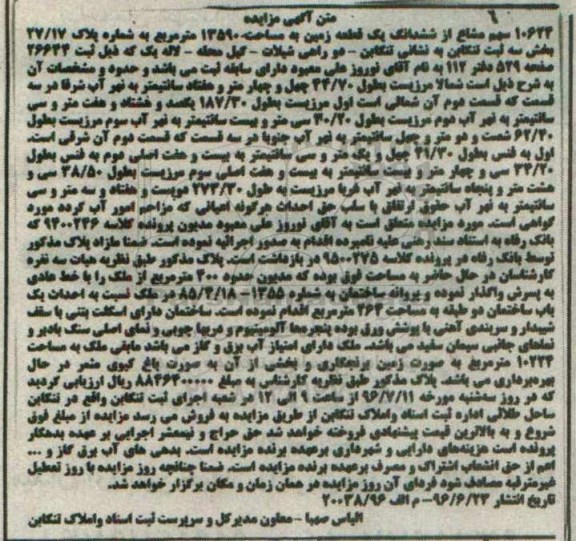 متن آگهی مزایده
۱۰۶۲۴ سهم مشاع از ششدانگ یک قطعه زمین به مساحت ۱۳۵۹۰ مترمربع به شماره پلاک ۲۷/۱۷
بخش سه ثبت تنکابن به نشانی تنکابن - دو راهی شیلات - گیل محله - لاله یک که ذیل ثبت ۲۶۶۴۴
صفحه ۵۲۹ دفتر ۱۱۲ به نام آقای نوروز علی معبود دارای سابقه ثبت می باشد و حدود و مشخصات آن
به شرح ذیل است شمالا مرزیست بطول ۴۴/۷۰ چهل و چهار متر و هفتاد سانتیمتر به نهر آب شرقا در سه
قسمت که قسمت دوم آن شمالی است اول مرزیست بطول ۱۸۷/۳۰ یکصد و هشتاد و هفت متر و سی
سانتیمتر به نهر آب دوم مرزیست بطول ۳۰/۲۰ سی متر و بیست سانتیمتر به نهر آب سوم مرزیست بطول
۶۲/۴۰ شصت و دو متر و چهل سانتیمتر به نهر آب جنوبا در سه قسمت که قسمت دوم آن شرقی است.
اول به فنس بطول ۴۱/۳۰ چهل و یک متر و سی سانتیمتر به بیست و هفت اصلی دوم به فنس بطول
۳۴/۲۰ سی و چهار متر و بیست سانتیمتر به بیست و هفت اصلی سوم مرزیست بطول ۳۸/۵۰ سی و
هشت متر و پنجاه سانتیمتر به نهر آب غربا مرزیست به طول ۲۷۳/۳۰ دویست و هفتاد و سه متر و سی
سانتیمتر به نهر آب حقوق ارتفاقی با سلب حق احداث هرگونه اعیانی که مزاحم امور آب گردد مورد
گواهی است. مورد مزایده متعلق است به آقای نوروز علی معبود مدیون پرونده کلاسه ۹۴۰۰۲۳۶ که
بانک رفاه به استناد سند رهنی علیه نامبرده اقدام به صدور اجرائیه نموده است. ضمنا مازاد پلاک مذکور
توسط بانک رفاه در پرونده کلاسه ۹۵۰۰۲۷۵ در بازداشت است. پلاک مذکور طبق نظریه هیات سه نفره
کارشناسان در حال حاضر به مساحت فوق بوده که مدیون حدود ۳۰۰ مترمربع از ملک را با خط عادی
به پسرش واگذار نموده و پروانه ساختمان به شماره ۱۳۵۵- ۸۵/۴/۱۸ در ملک نسبت به احداث یک
باب ساختمان دو طبقه به مساحت ۲۶۴ مترمربع اقدام نموده است. ساختمان دارای اسکلت بتنی با سقف
شیبدار و سربندی آهنی با پوشش ورق بوده پنجره‌ها آلومینیوم و دربها چوبی و نمای اصلی سنگ بادبر و
نماهای جانبی سیمان سفید می باشد. ملک دارای امتیاز آب برق و گاز می باشد مابقی ملک به مساحت
۱۰۲۲۴ مترمربع به صورت زمین برنجکاری و بخشی از آن به صورت باغ کیوی مثمر در حال
بهره‌برداری می باشد. پلاک مذکور طبق نظریه کارشناس به مبلغ ۸۸۴۶۴۰۰۰۰۰ ریال ارزیابی گردید
که در روز سه‌شنبه مورخه ۹۶/۷/۱۱ از ساعت ۹ الی ۱۲ در شعبه اجرای ثبت تنکابن واقع در تنکابن
ساحل طلائی اداره ثبت اسناد واملاک تنکابن از طریق مزایده به فروش می رسد مزایده از مبلغ فوق
شروع و به بالاترین قیمت پیشنهادی فروخته خواهد شد حق حراج و نیمعشر اجرایی بر عهده بدهکار
پرونده است هزینه‌های دارایی و شهرداری برعهده برنده مزایده است. بدهی های آب برق گاز و ...
اعم از حق انشعاب اشتراک و مصرف برعهده برنده مزایده است. ضمنا چنانچه روز مزایده با روز تعطیل
غیرمترقبه مصادف شود فردای آن روز مزایده در همان زمان و مکان برگزار خواهد شد.
تاریخ انتشار ۹۶/۶/۲۳- م الف ۲۰۰۳۸/۹۶
الیاس صهبا - معاون مدیرکل و سرپرست ثبت اسناد واملاک تنکابن